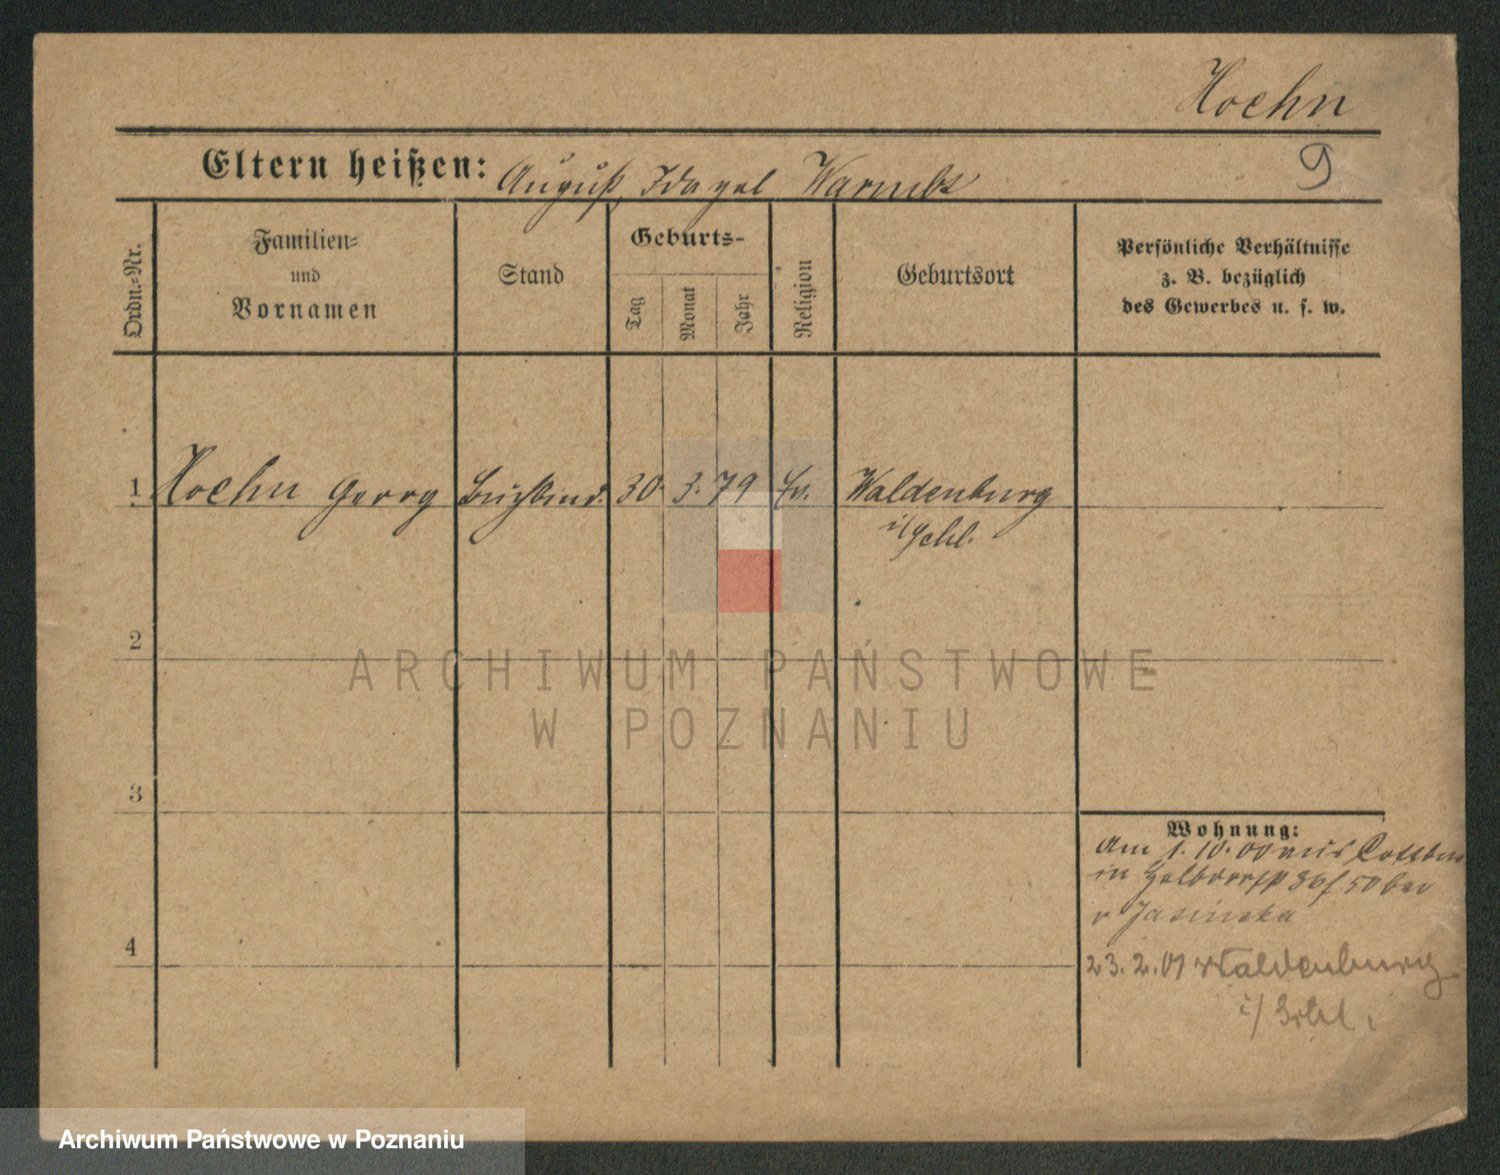 Hoehn
9
Eltern heißen: August, Ida geb Warmbt
Ordn.-Nr.
Familien-
und
Vornamen
Stand
Geburts-
Tag
Monat
Jahr
Religion
Geburtsort
Persönliche Verhältnisse
z. B. bezüglich
des Gewerbes u. s. w.
1 Hoehn Georg Buchbind. 30. 3. 79 Ev. Waldenburg
i/Schl.
2
ARCHIWUM PAŃSTWOWE
W POZNANIU
3
Wohnung:
Am 1. 10. 00 aus Cottbus
in 36/ 50 bei
v Jasinska
4
23. 2. 01 Waldenburg
i/ Schl.
Archiwum Państwowe w Poznaniu